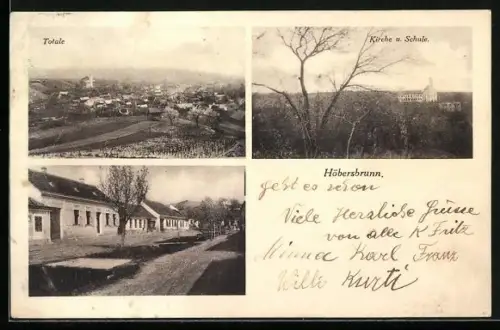 Totale
Kirche u. Schule.
Höbersbrunn.
geht es schon
Viele Herzliche Grüsse
von alle K Fritz
Minna Karl Franz
Willi Kurti